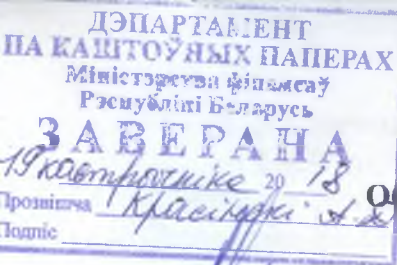 ДЭПАРТАМЕНТ
ПА КАШТОЎНЫХ ПАПЕРАХ
Міністэрства фінансаў
Рэспублікі Беларусь
ЗАВЕРАНА
19 кастрычніка 20 18
Прозвішча Красінскі
Подпіс